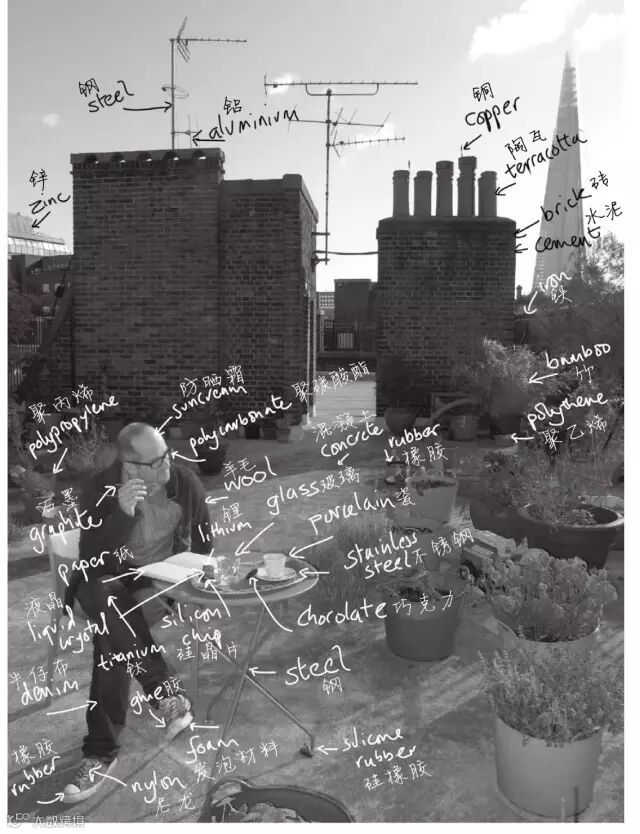 钢
steel
铝
aluminium
铜
copper
陶瓦
terracotta
锌
zinc
brick 砖
水泥
cement
iron
铁
bamboo
竹
聚丙烯
polypropylene
防晒霜
suncream
polycarbonate 聚碳酸酯
混凝土
concrete
rubber
橡胶
polythene
聚乙烯
石墨
graphite
羊毛
wool
锂
lithium
glass 玻璃
porcelain 瓷
paper 纸
stainless
steel 不锈钢
液晶
liquid
crystal
titanium
钛
silicon
chip
硅晶片
chocolate 巧克力
牛仔布
denim
glue 胶
steel
钢
foam
发泡材料
silicone
rubber
硅橡胶
橡胶
rubber
nylon
尼龙
大数跨境